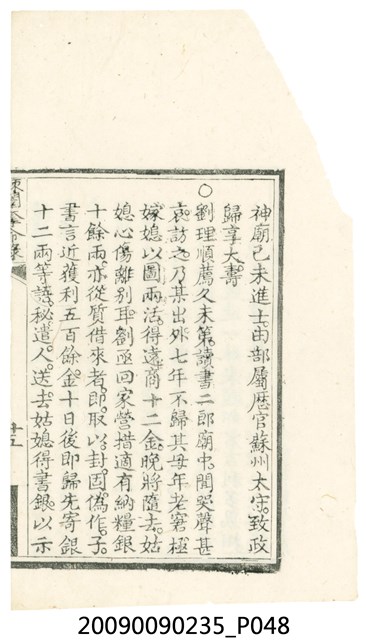 神廟己未進士。由部屬歷官蘇州太守。致政
歸享大壽。
○劉理順薦久未第。讀書二郎廟中。聞哭聲甚
哀。訪之。乃其出外七年不歸。其母年老窘極
嫁媳以圖兩活。得遠商十二金。晚將隨去。姑
媳心傷離别耳。劉亟回家營措。適有納糧銀
十餘兩。亦從質借來者。即取以封。因僞作子
書。言近獲利五百餘金。十日後即歸。先寄銀
十二兩等語。秘遣人送去。姑媳得書銀。以示
20090090235_P048